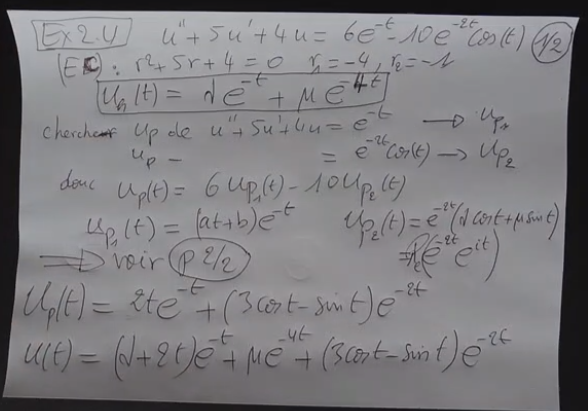 Ex 2.4 u'' + 5u' + 4u = 6e^{-t} - 10e^{-2t} cos(t) 1/2
(EC): r² + 5r + 4 = 0 r₁ = -4, r₂ = -1
u_h(t) = λe^{-t} + μe^{-4t}
chercher u_p de u'' + 5u' + 4u = e^{-t} → u_{p1}
u_p — = e^{-2t} cos(t) → u_{p2}
donc u_p(t) = 6u_{p1}(t) - 10u_{p2}(t)
u_{p1}(t) = (at+b)e^{-t} u_{p2}(t) = e^{-2t}(λcost + μsint)
(e^{-2t} e^{it})
⇒ voir p 2/2
u_p(t) = 2te^{-t} + (3cost - sint)e^{-2t}
u(t) = (λ+2t)e^{-t} + μe^{-4t} + (3cost - sint)e^{-2t}